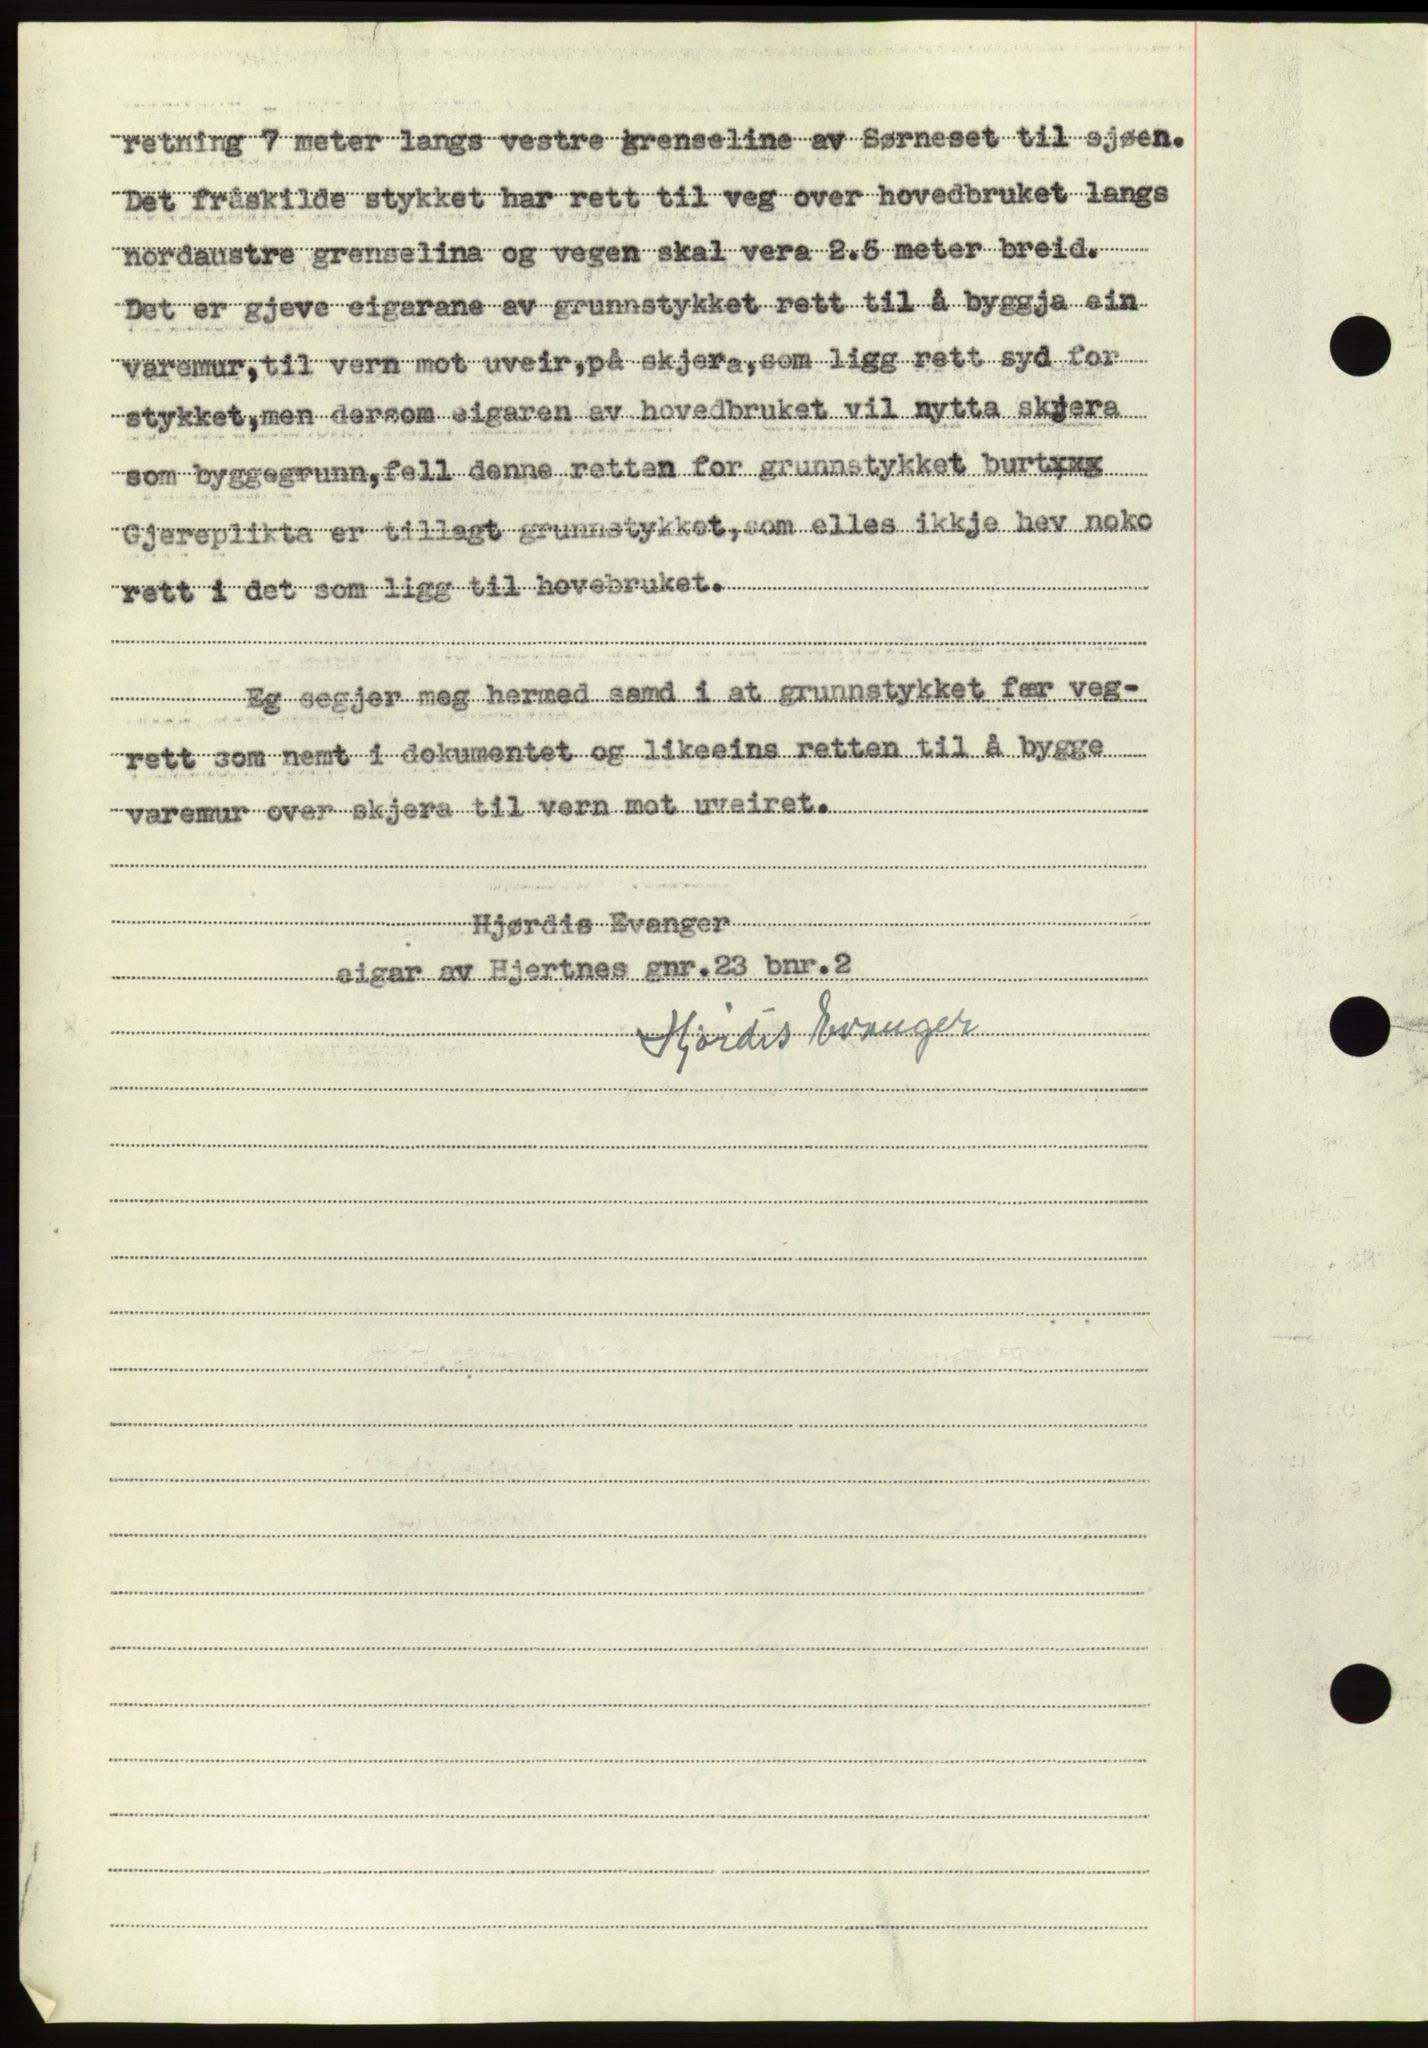 retning 7 meter langs vestre grenseline av Sørneset til sjøen.
Det fråskilde stykket har rett til veg over hovedbruket langs
nordaustre grenselina og vegen skal vera 2.5 meter breid.
Det er gjeve eigarane av grunnstykket rett til å byggja ein
varemur,til vern mot uveir,på skjera,som ligg rett syd for
stykket,men dersom eigaren av hovedbruket vil nytta skjera
som byggegrunn,fell denne retten for grunnstykket burtxxx
Gjereplikta er tillagt grunnstykket,som elles ikkje hev noko
rett i det som ligg til hovebruket.
Eg segjer meg hermed samd i at grunnstykket fær veg-
rett som nemt i dokumentet og likeeins retten til å bygge
varemur over skjera til vern mot uveiret.
Hjørdis Evanger
eigar av Hjertnes gnr.23 bnr.2
Hjördis Evanger